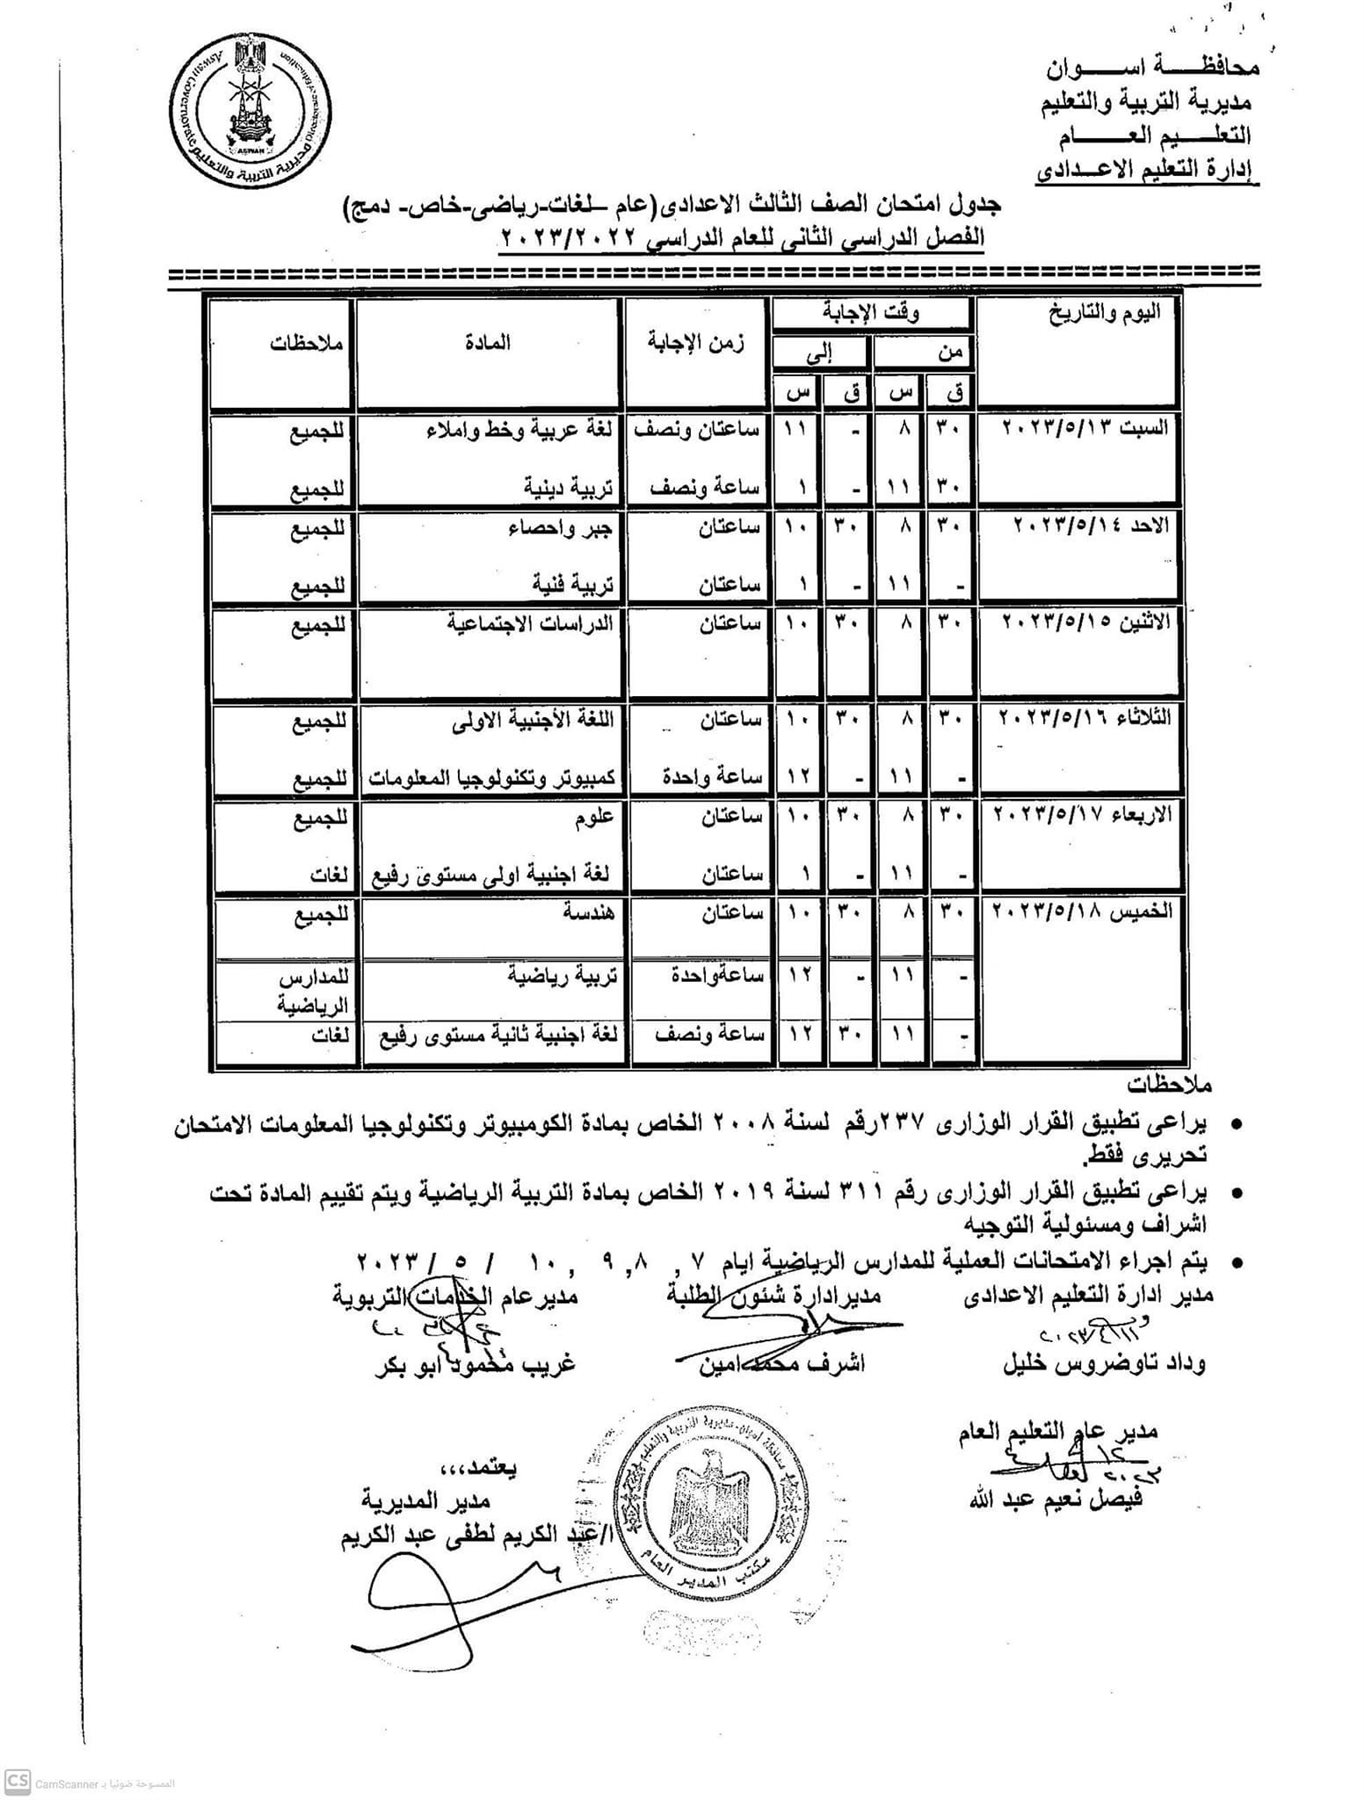 محافظـــة اســـوان
مديرية التربية والتعليم
التعلـــيم العـــــام
إدارة التعليم الاعـــدادى
Aswan Governorate
Directorate Education
ASWAN
مديرية التربية والتعليم
جدول امتحان الصف الثالث الاعدادى(عام –لغات-رياضى-خاص- دمج)
الفصل الدراسي الثانى للعام الدراسي ٢٠٢٣/٢٠٢٢
اليوم والتاريخ وقت الإجابة زمن الإجابة المادة ملاحظات
من إلى
ق س ق س
السبت ٢٠٢٣/٥/١٣ ٣٠ ٨ - ١١ ساعتان ونصف لغة عربية وخط واملاء للجميع
٣٠ ١١ - ١ ساعة ونصف تربية دينية للجميع
الاحد ٢٠٢٣/٥/١٤ ٣٠ ٨ ٣٠ ١٠ ساعتان جبر واحصاء للجميع
- ١١ - ١ ساعتان تربية فنية للجميع
الاثنين ٢٠٢٣/٥/١٥ ٣٠ ٨ ٣٠ ١٠ ساعتان الدراسات الاجتماعية للجميع
الثلاثاء ٢٠٢٣/٥/١٦ ٣٠ ٨ ٣٠ ١٠ ساعتان اللغة الأجنبية الاولى للجميع
- ١١ - ١٢ ساعة واحدة كمبيوتر وتكنولوجيا المعلومات للجميع
الاربعاء ٢٠٢٣/٥/١٧ ٣٠ ٨ ٣٠ ١٠ ساعتان علوم للجميع
- ١١ - ١ ساعتان لغة اجنبية اولى مستوى رفيع لغات
الخميس ٢٠٢٣/٥/١٨ ٣٠ ٨ ٣٠ ١٠ ساعتان هندسة للجميع
- ١١ - ١٢ ساعةواحدة تربية رياضية للمدارس
الرياضية
- ١١ ٣٠ ١٢ ساعة ونصف لغة اجنبية ثانية مستوى رفيع لغات
ملاحظات
• يراعى تطبيق القرار الوزارى ٢٣٧رقم لسنة ٢٠٠٨ الخاص بمادة الكومبيوتر وتكنولوجيا المعلومات الامتحان
تحريرى فقط.
• يراعى تطبيق القرار الوزارى رقم ٣١١ لسنة ٢٠١٩ الخاص بمادة التربية الرياضية ويتم تقييم المادة تحت
اشراف ومسئولية التوجيه
• يتم اجراء الامتحانات العملية للمدارس الرياضية ايام ٧ , ٨ , ٩ , ١٠ / ٥ / ٢٠٢٣
مدير ادارة التعليم الاعدادى مديرادارة شئون الطلبة مديرعام الخدمات التربوية
وداد تاوضروس خليل اشرف محمد امين غريب محمود ابو بكر
مدير عام التعليم العام
فيصل نعيم عبد الله
يعتمد،،،
مدير المديرية
ا/عبد الكريم لطفى عبد الكريم
مكتب المدير العام
الممسوحة ضوئيا بـ CamScanner
CS